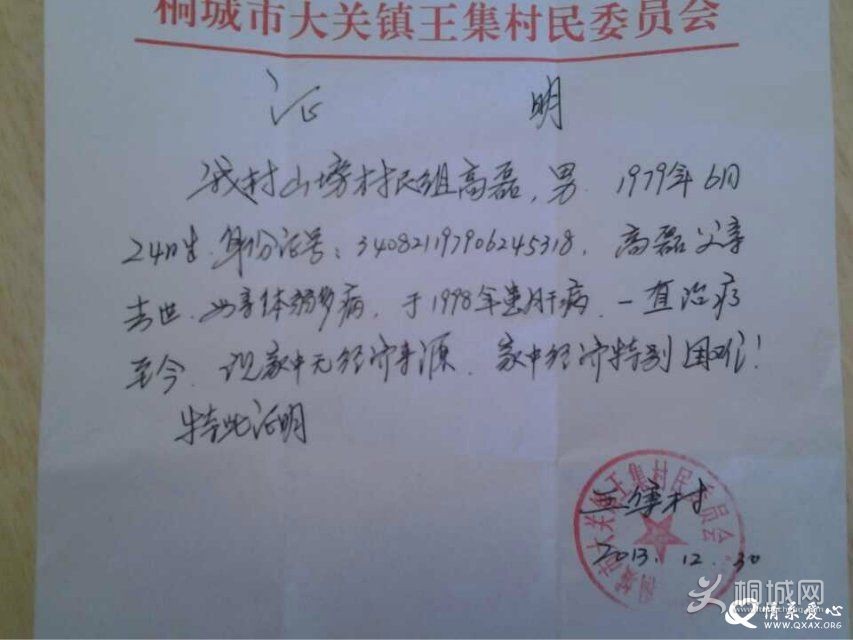 桐城市大关镇王集村民委员会
证 明
我村山塝村民组高磊,男.1979年6月
24日生.身份证号:340821197906245318.高磊父亲
去世.母亲体弱多病.于1998年患肝病.一直治疗
至今.现家中无经济来源.家中经济特别困难!
特此证明
王集村
2013.12.30
桐城市大关镇王集村民委员会
桐城网
情系爱心
www.QXAX.ORG